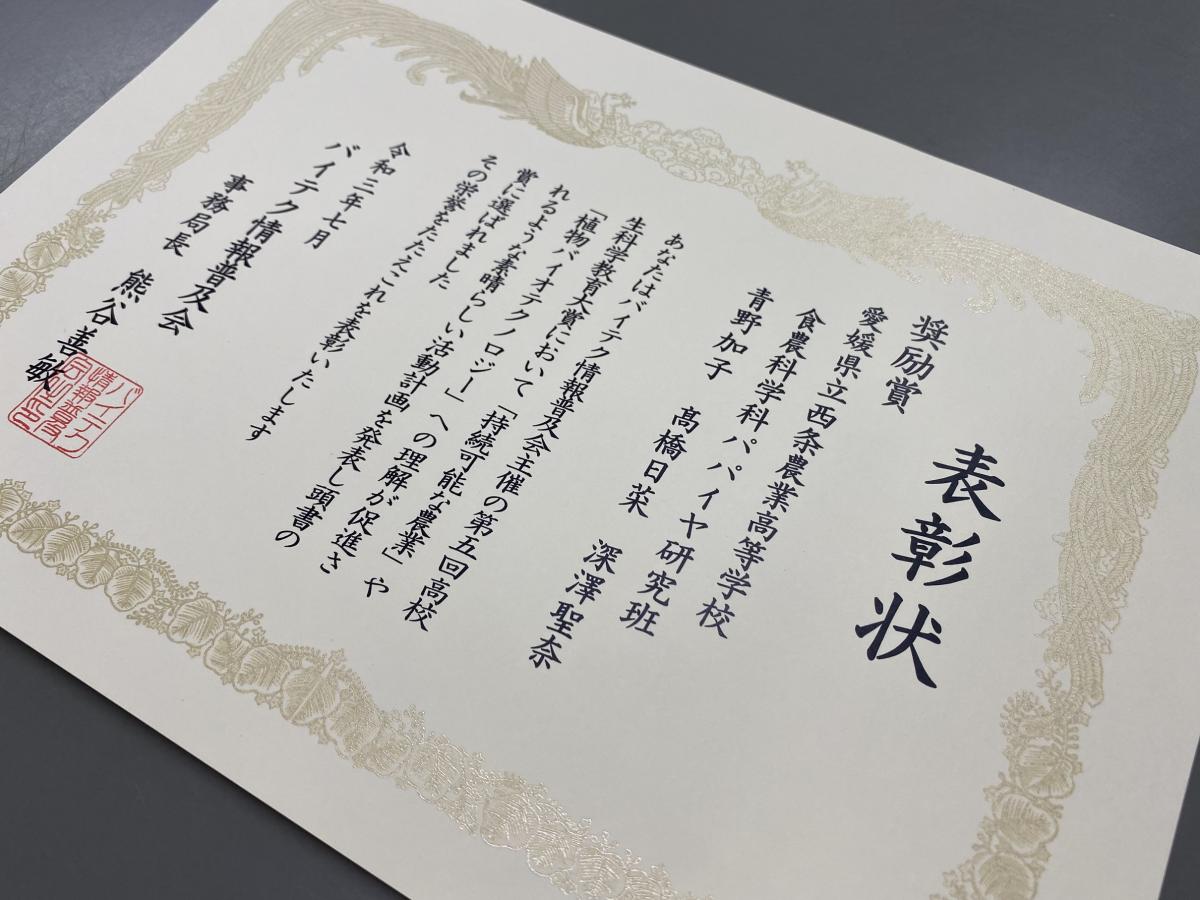 表彰状
奨励賞
愛媛県立西条農業高等学校
食農科学科パパイヤ研究班
青野加子 髙橋日菜 深澤聖奈
あなたはバイテク情報普及会主催の第五回高校
生科学教育大賞において「持続可能な農業」や
「植物バイオテクノロジー」への理解が促進さ
れるような素晴らしい活動計画を発表し頭書の
賞に選ばれました
その栄誉をたたえこれを表彰いたします
令和三年七月
バイテク情報普及会
事務局長 熊谷善敏
バイテク
情報普及
会之印